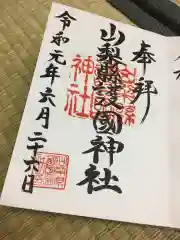 奉拝
山梨縣護國神社
神社
令和元年六月二十六日